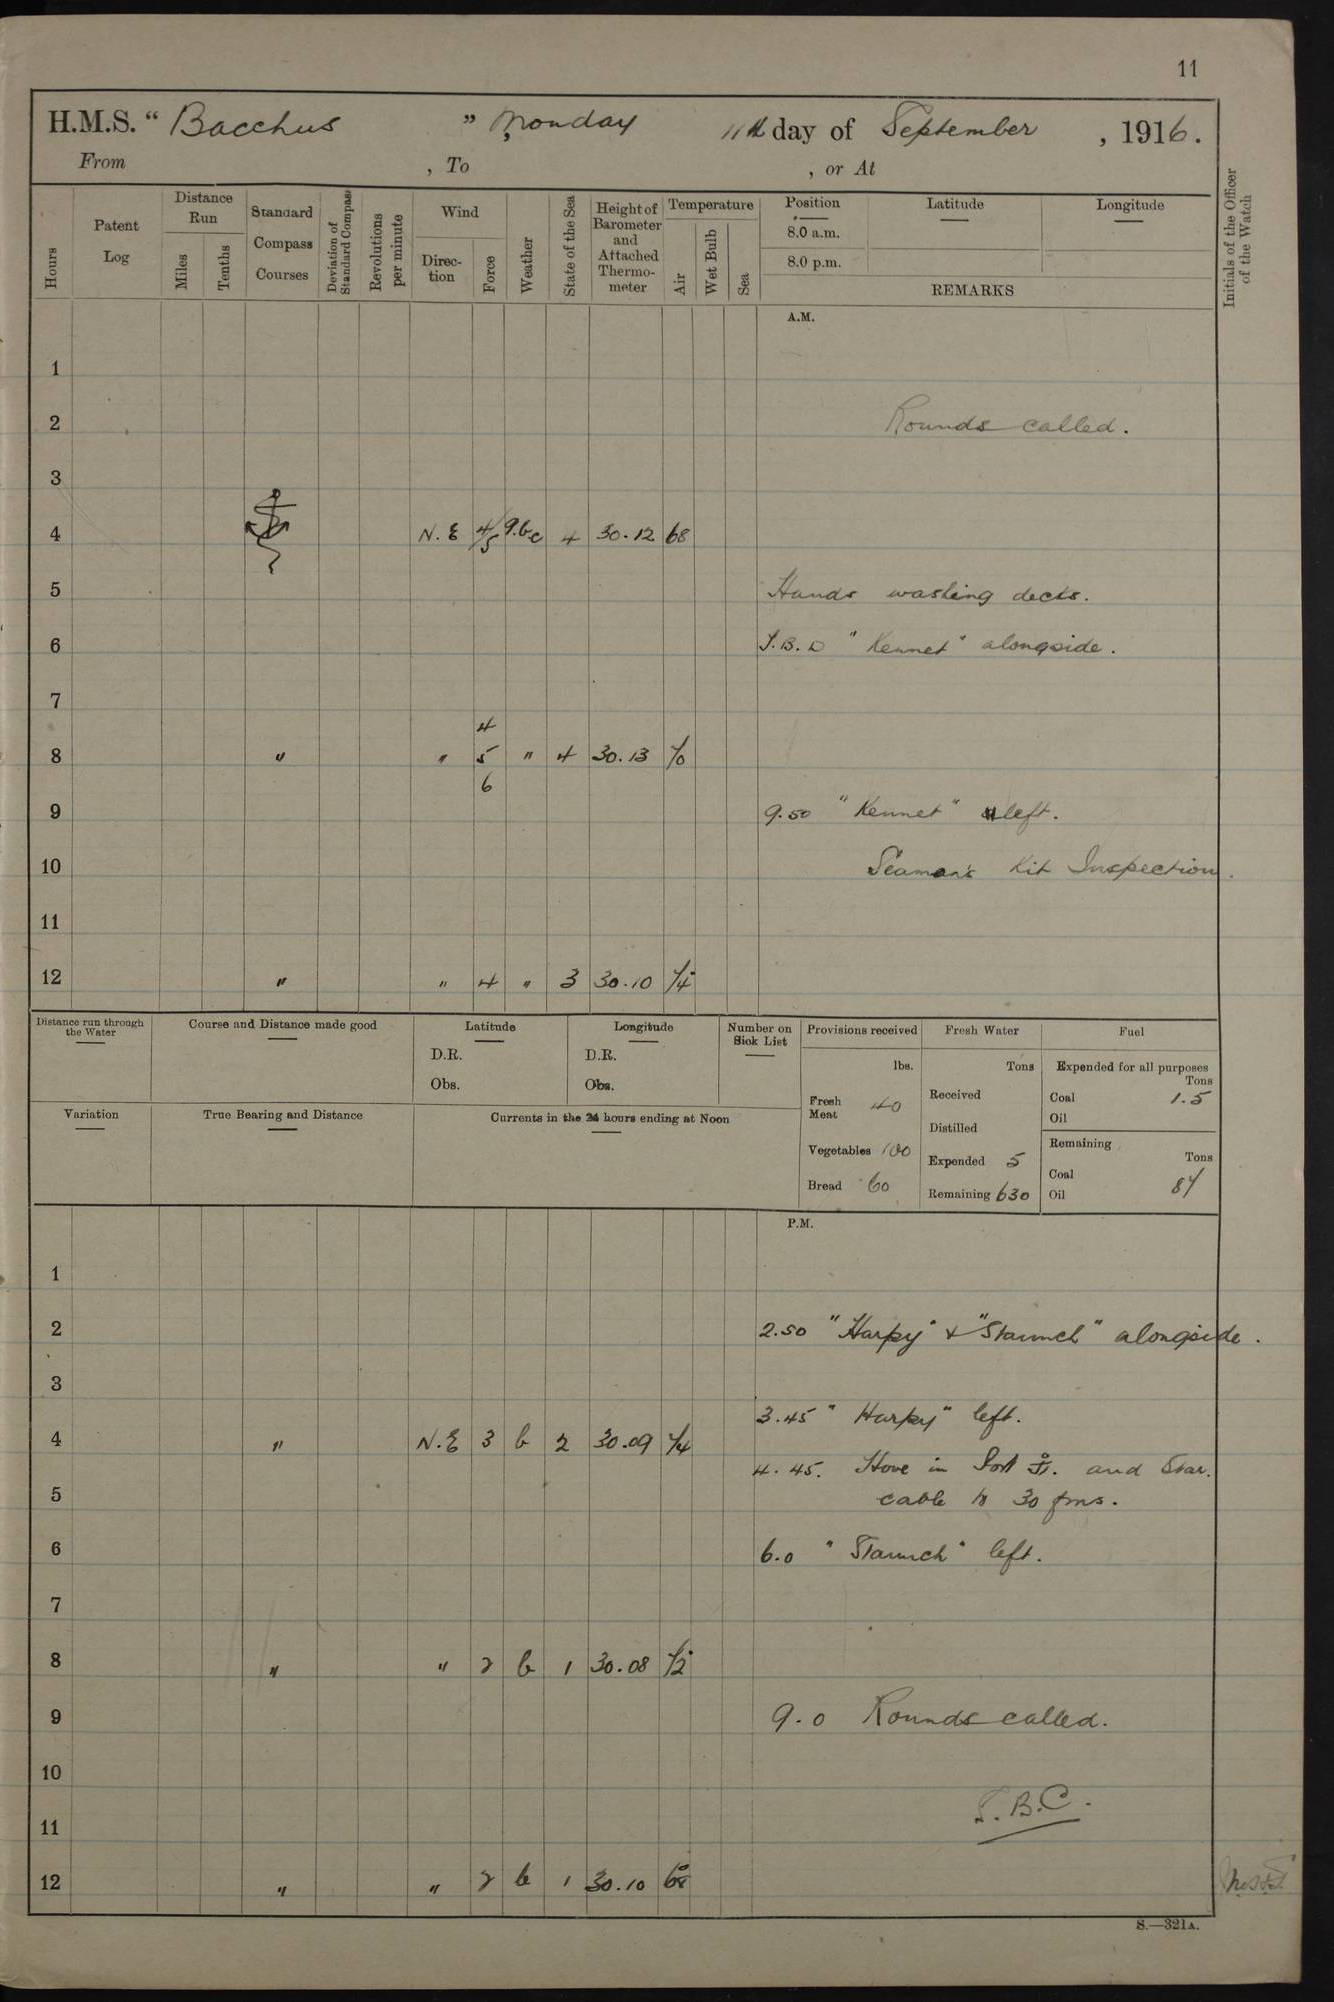 11
H.M.S. “ Bacchus ” , Monday 11th day of September , 1916.
From , To , or At
Hours
Patent Log
Distance Run
Miles
Tenths
Standard Compass Courses
Deviation of Standard Compass
Revolutions per minute
Wind
Direction
Force
Weather
State of the Sea
Height of Barometer and Attached Thermometer
Temperature
Air
Wet Bulb
Sea
Position
8.0 a.m.
8.0 p.m.
Latitude
Longitude
REMARKS
Initials of the Officer of the Watch
A.M.
1
2 Rounds called.
3
4 N.E 4/5 9.bc 4 30.12 68
5 Hands washing decks.
6 T.B.D "Kennet" alongside.
7
8 " " 4 5 6 " 4 30.13 70
9 9.50 "Kennet" left.
10 Seaman's Kit Inspection.
11
12 " " 4 " 3 30.10 74
Distance run through the Water
Course and Distance made good
Latitude
D.R.
Obs.
Longitude
D.R.
Obs.
Number on Sick List
Variation
True Bearing and Distance
Currents in the 24 hours ending at Noon
Provisions received
lbs.
Fresh Meat 40
Vegetables 100
Bread 60
Fresh Water
Tons
Received
Distilled
Expended 5
Remaining 630
Fuel
Expended for all purposes
Tons
Coal 1.5
Oil
Remaining
Tons
Coal 87
Oil
P.M.
1
2 2.50 "Harpy" & "Staunch" alongside.
3
3.45 "Harpy" left.
4 " N.E 3 b 2 30.09 74
4.45. Hove in Port and Star.
5 cable to 30 fms.
6 6.0 "Staunch" left.
7
8 " " 2 b 1 30.08 72
9 9.0 Rounds called.
10
T.B.C.
11
12 " " 2 b 1 30.10 68
S.—321A.